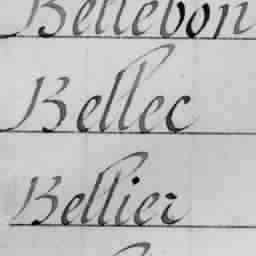 Bellebon
Bellec
Bellier